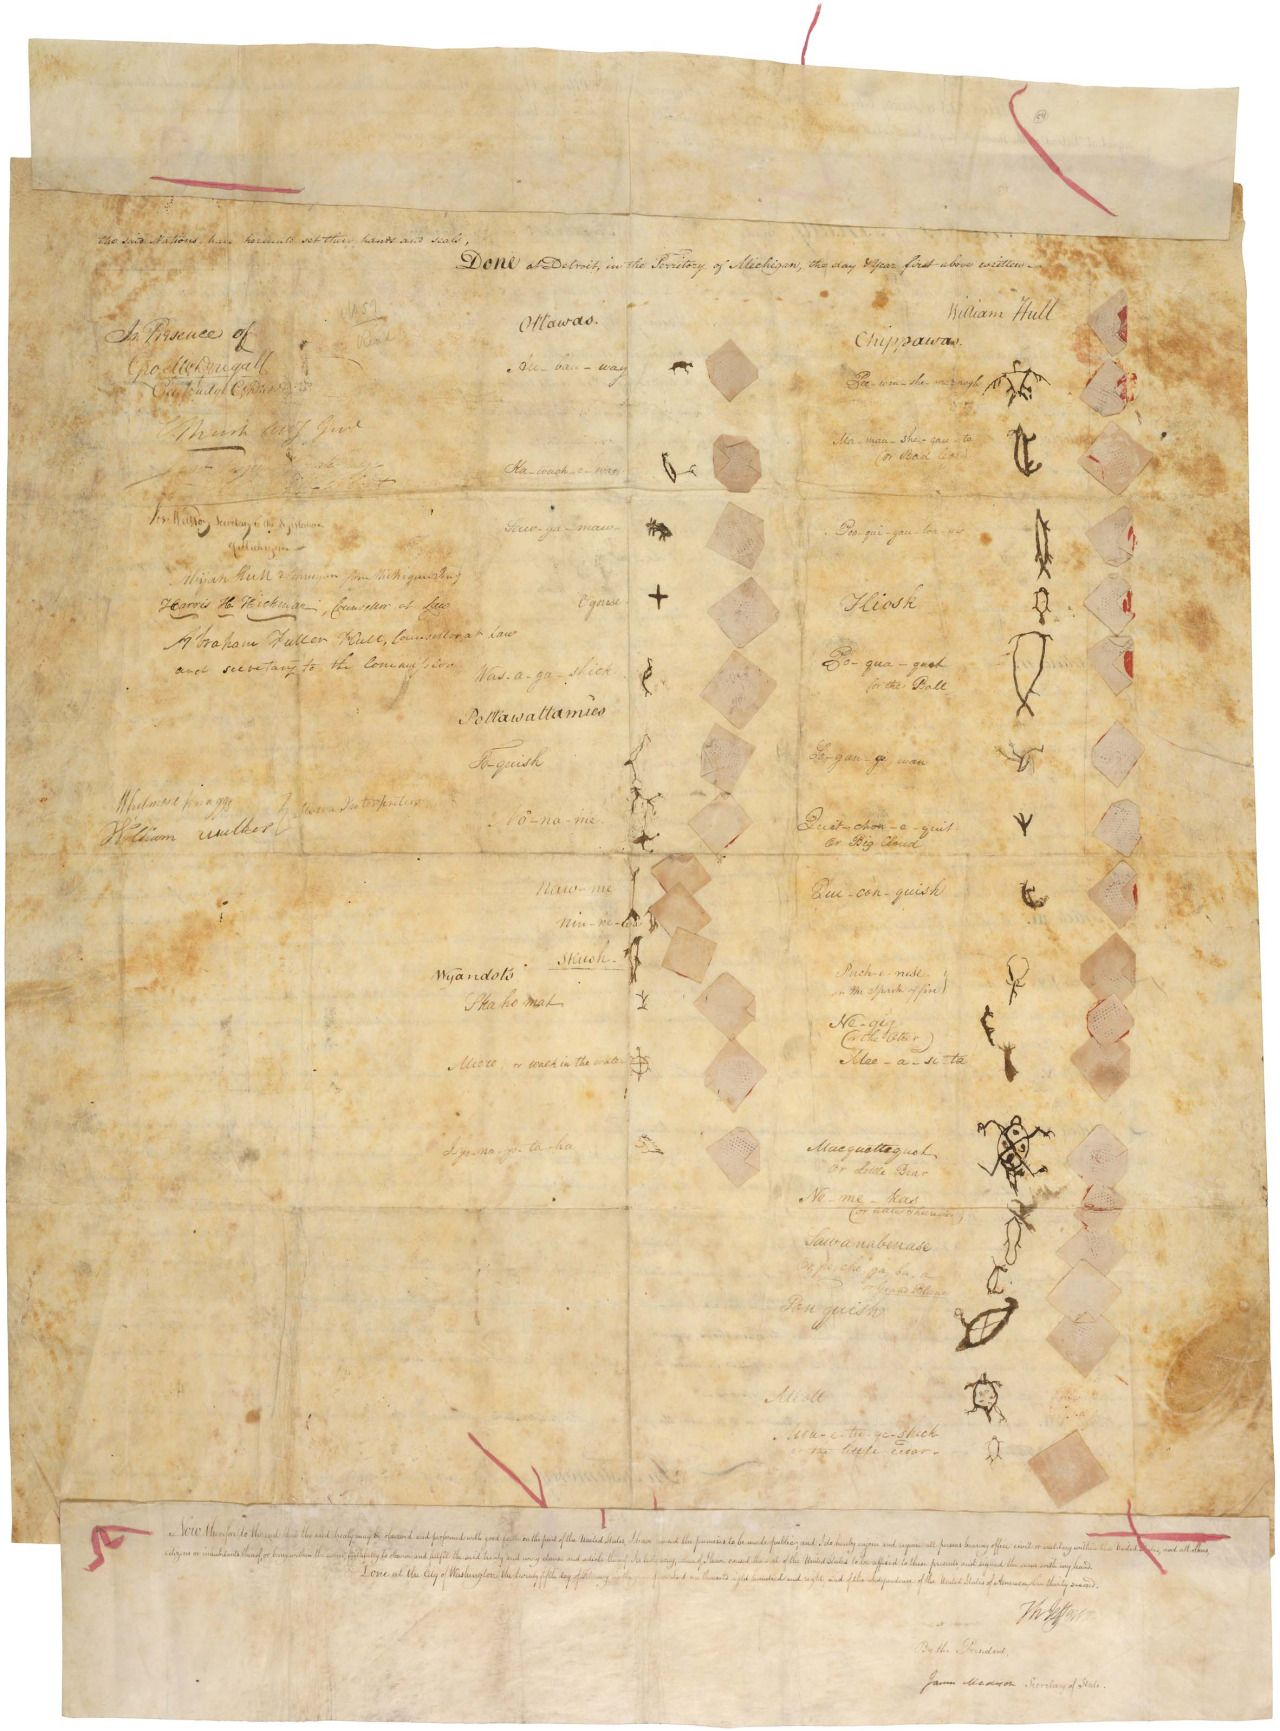 the said Nations, have hereunto set their hands and seals,
Done at Detroit, in the Territory of Michigan, the day & year first above written.
William Hull
In Presence of
Geo McDougall
Chief Judge
Jos. Watson Secretary to the Legislature
of Michigan
Abijah Hull Surveyor for Michigan
Harris H. Hickman, Counsellor at Law
Abraham Fuller Hull, Counsellor at Law
and secretary to the Commission
Whitmore Knaggs
William Walker
Sworn Interpreters
Ottawas.
Ka-
Saw-ga-maw
Ogouse
Was-a-ga-shick
Pottawattamies
To-quish
No-na-me
Naw-me
Nin-ne-
Skush
Wyandots
Ska ho mat
Miere, or walk in the water
Chippawas.
Pee-
Ma-mau-she-gau-ta
(or Bad Legs)
Poo-qui-gau-
Kiosk
Po-qua-quet
(or the Ball
Se-gau-ge wan
Quit-chon-e-quit
Or Big Cloud
Qui-con-quish
Puch-e-nose
or the Spark of fire)
Ne-gig
(or the Otter)
Mee-a-si-ta
Macquettequet
Or Little Bear
Ne-me-kas
(or Little Thunder)
Sawanabenase
Or Pe-che-ga-bu-a
or Grand Blanc
Ton quish
Miott
Meu-e-tu-ge-shick
or the little Cedar.
Now therefore to the end that the said treaty may be observed and performed with good faith on the part of the United States, I have caused the premises to be made public; and I do hereby enjoin and require all persons bearing office civil or military within the United States, and all others,
citizens or inhabitants thereof or being within the same, faithfully to observe and fulfil the said treaty and every clause and article thereof. In testimony whereof I have caused the seal of the United States to be affixed to these presents and signed the same with my hand.
Done at the City of Washington the twenty fifth day of one thousand eight hundred and eight and of the independence of the United States of America the thirty second.
Th Jefferson
By the President,
James Madison Secretary of State.